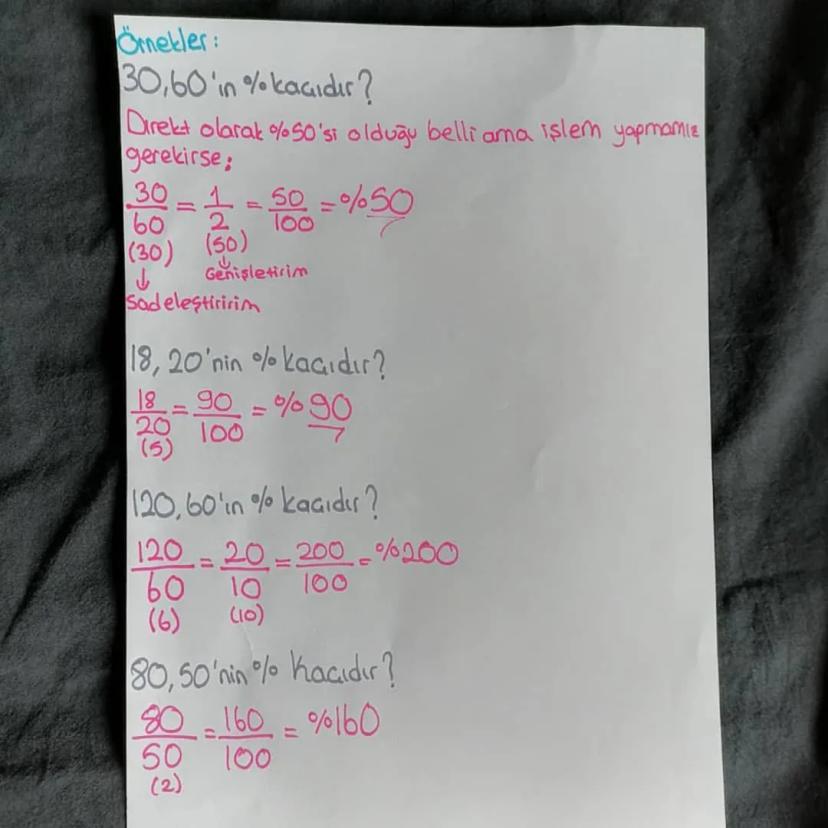 Örnekler:
30,60'ın %kaçıdır?
Direkt olarak %50'si olduğu belli ama işlem yapmamız
gerekirse;
30/60 = 1/2 = 50/100 = %50
(30) (50)
↓ ↓
Genişletirim
Sadeleştiririm
18, 20'nin % kaçıdır?
18/20 = 90/100 = %90
(5)
120,60'ın % kaçıdır?
120/60 = 20/10 = 200/100 = %200
(6) (10)
80,50'nin % kaçıdır?
80/50 = 160/100 = %160
(2)